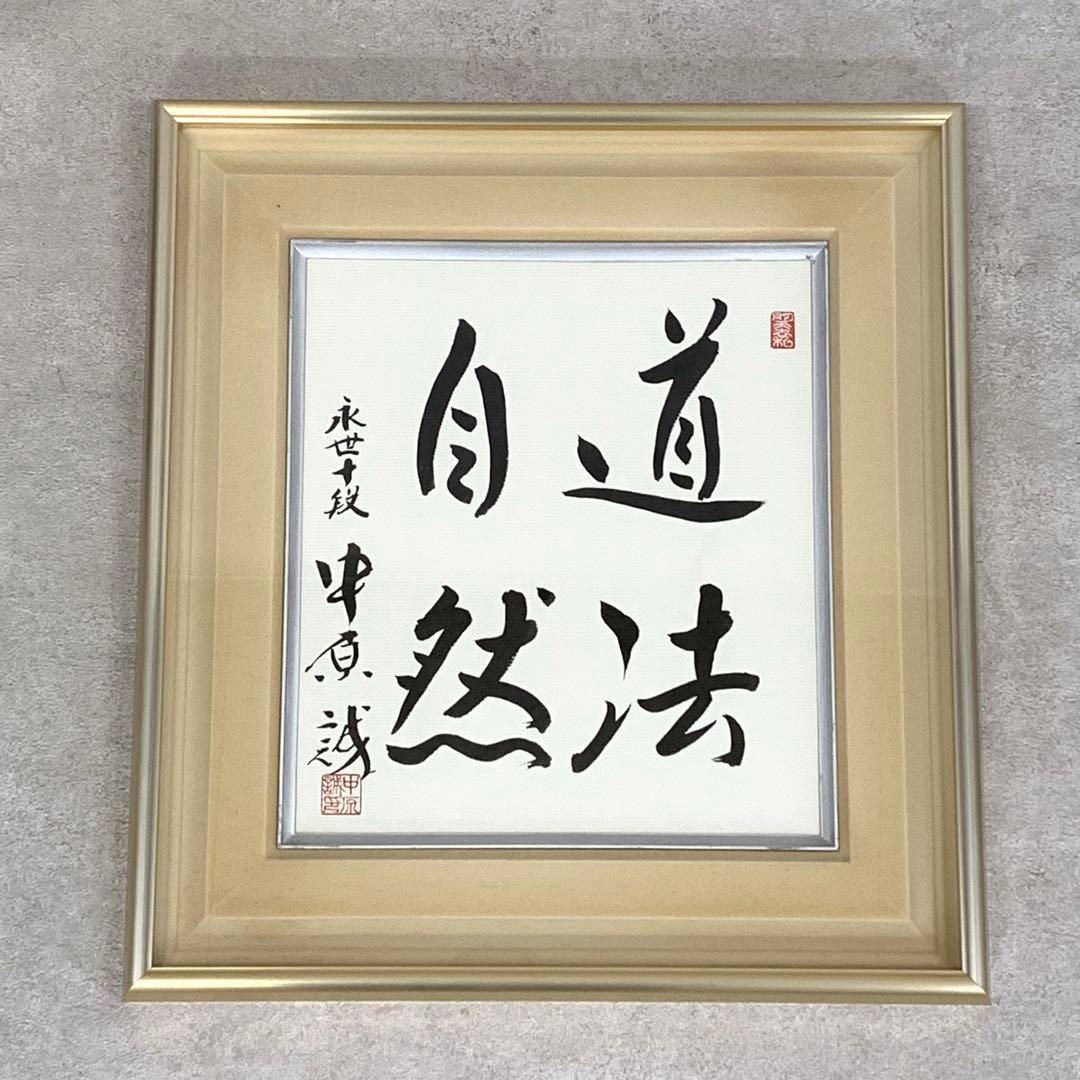 道法
自然
永世十段
中原誠
中原誠印